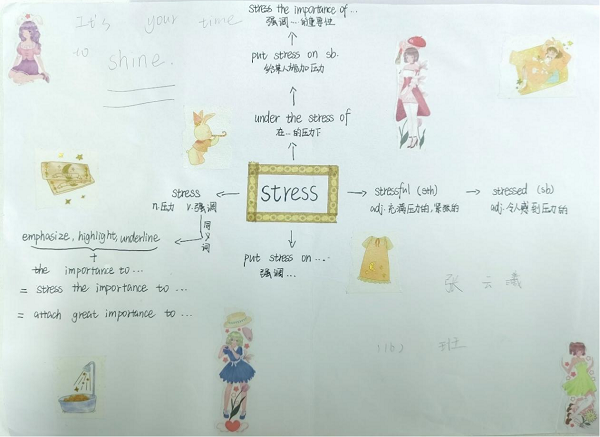 It's your time
to
shine.
stress the importance of...
强调...的重要性
put stress on sb.
给某人增加压力
under the stress of
在...的压力下
stress
stress
n.压力 v.强调
stressful (sth)
adj.充满压力的,紧张的
stressed (sb)
adj.令人感到压力的
同义词
emphasize, highlight, underline
+
the importance to...
= stress the importance to...
= attach great importance to...
put stress on ....
强调...
张云曦
班